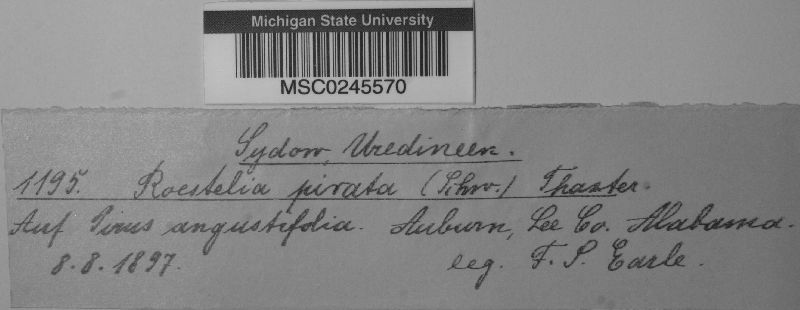 Michigan State University
MSC0245570
Sydow, Uredineen.
1195. Roestelia pirata (Schw.) Thaxter.
Auf Pirus angustifolia. Auburn, Lee Co. Alabama.
8.8.1897. leg. F. S. Earle.